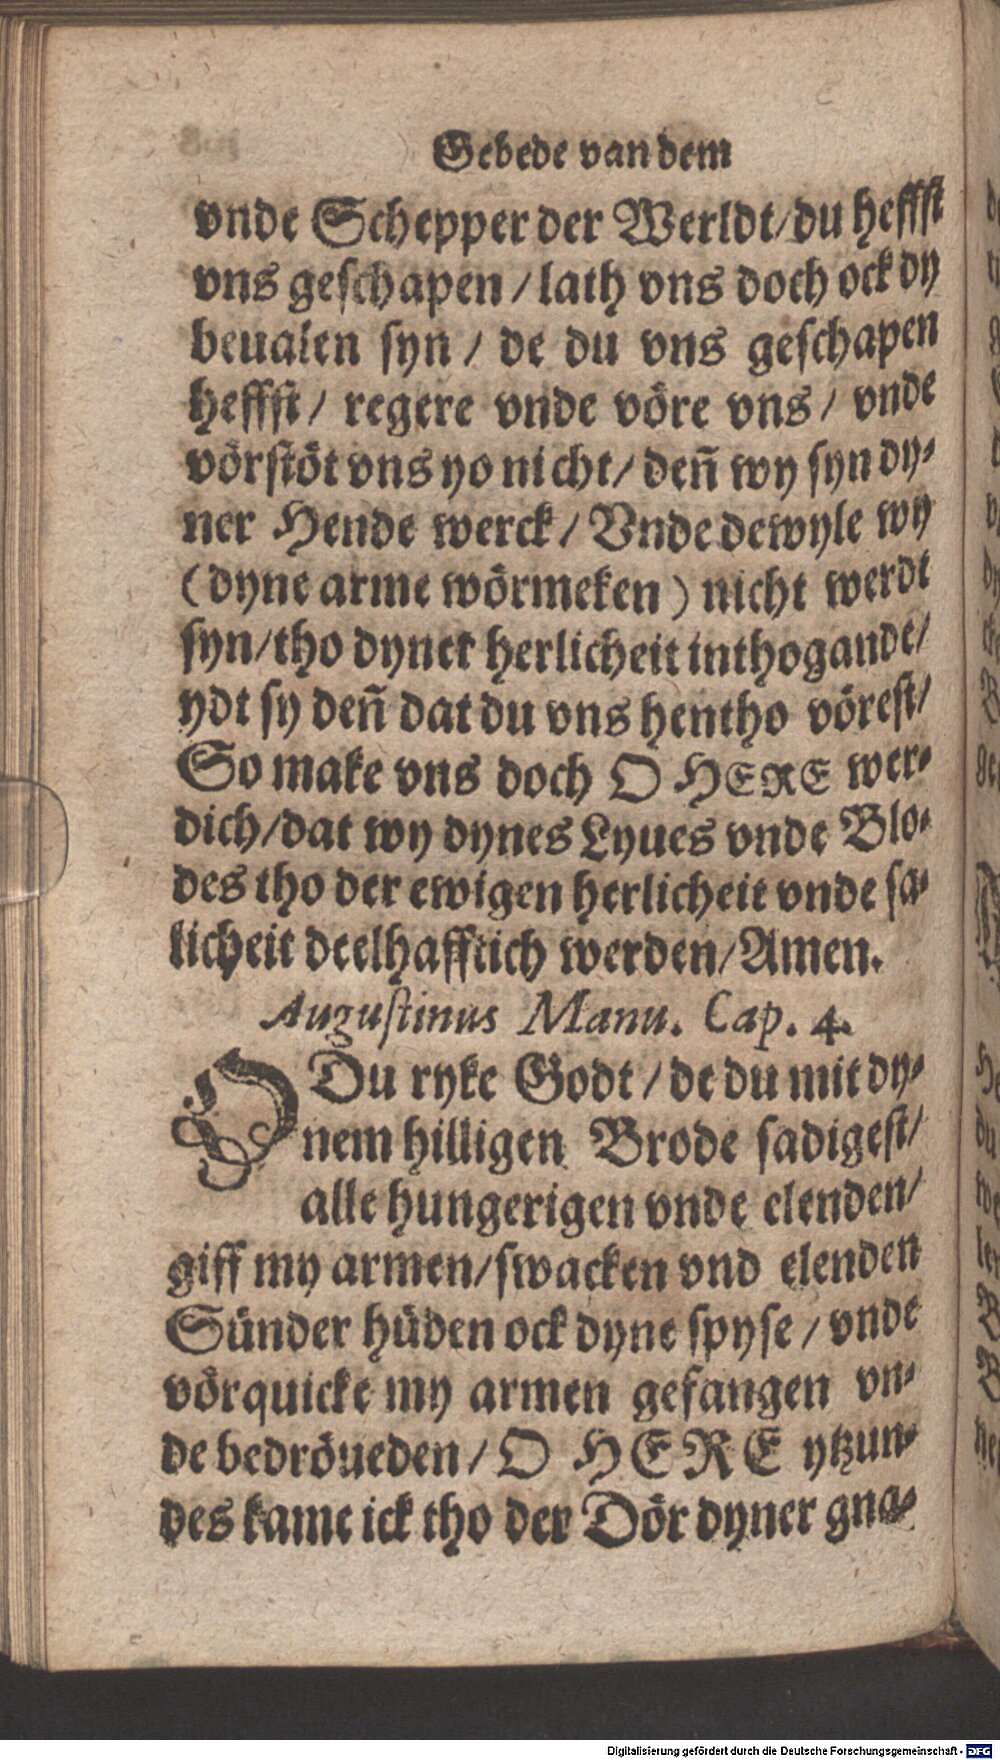 Gebede van dem
vnde Schepper der Werldt/du heffst
vns geschapen / lath vns doch ock dy
beualen syn / de du vns geschapen
heffst/ regere vnde vöre vns/ vnde
vörstöt vns yo nicht/ deñ wy syn dy-
ner Hende werck / Vnde dewyle wy
(dyne arme wörmeken) nicht werdt
syn/tho dyner herlicheit inthogande/
ydt sy deñ dat du vns hentho vörest/
So make vns doch O HERE wer-
dich/dat wy dynes Lyues vnde Blo-
des tho der ewigen herlicheit vnde sa-
licheit deelhafftich werden/Amen.
Augustinus Manu. Cap. 4.
O Du ryke Godt / de du mit dy-
nem hilligen Brode sadigest/
alle hungerigen vnde elenden/
giff my armen/swacken vnd elenden
Sünder hüden ock dyne spyse / vnde
vörquicke my armen gefangen vn-
de bedröueden / O HERE ytzun-
des kame ick tho der Dör dyner gna-
Digitalisierung gefördert durch die Deutsche Forschungsgemeinschaft - DFG